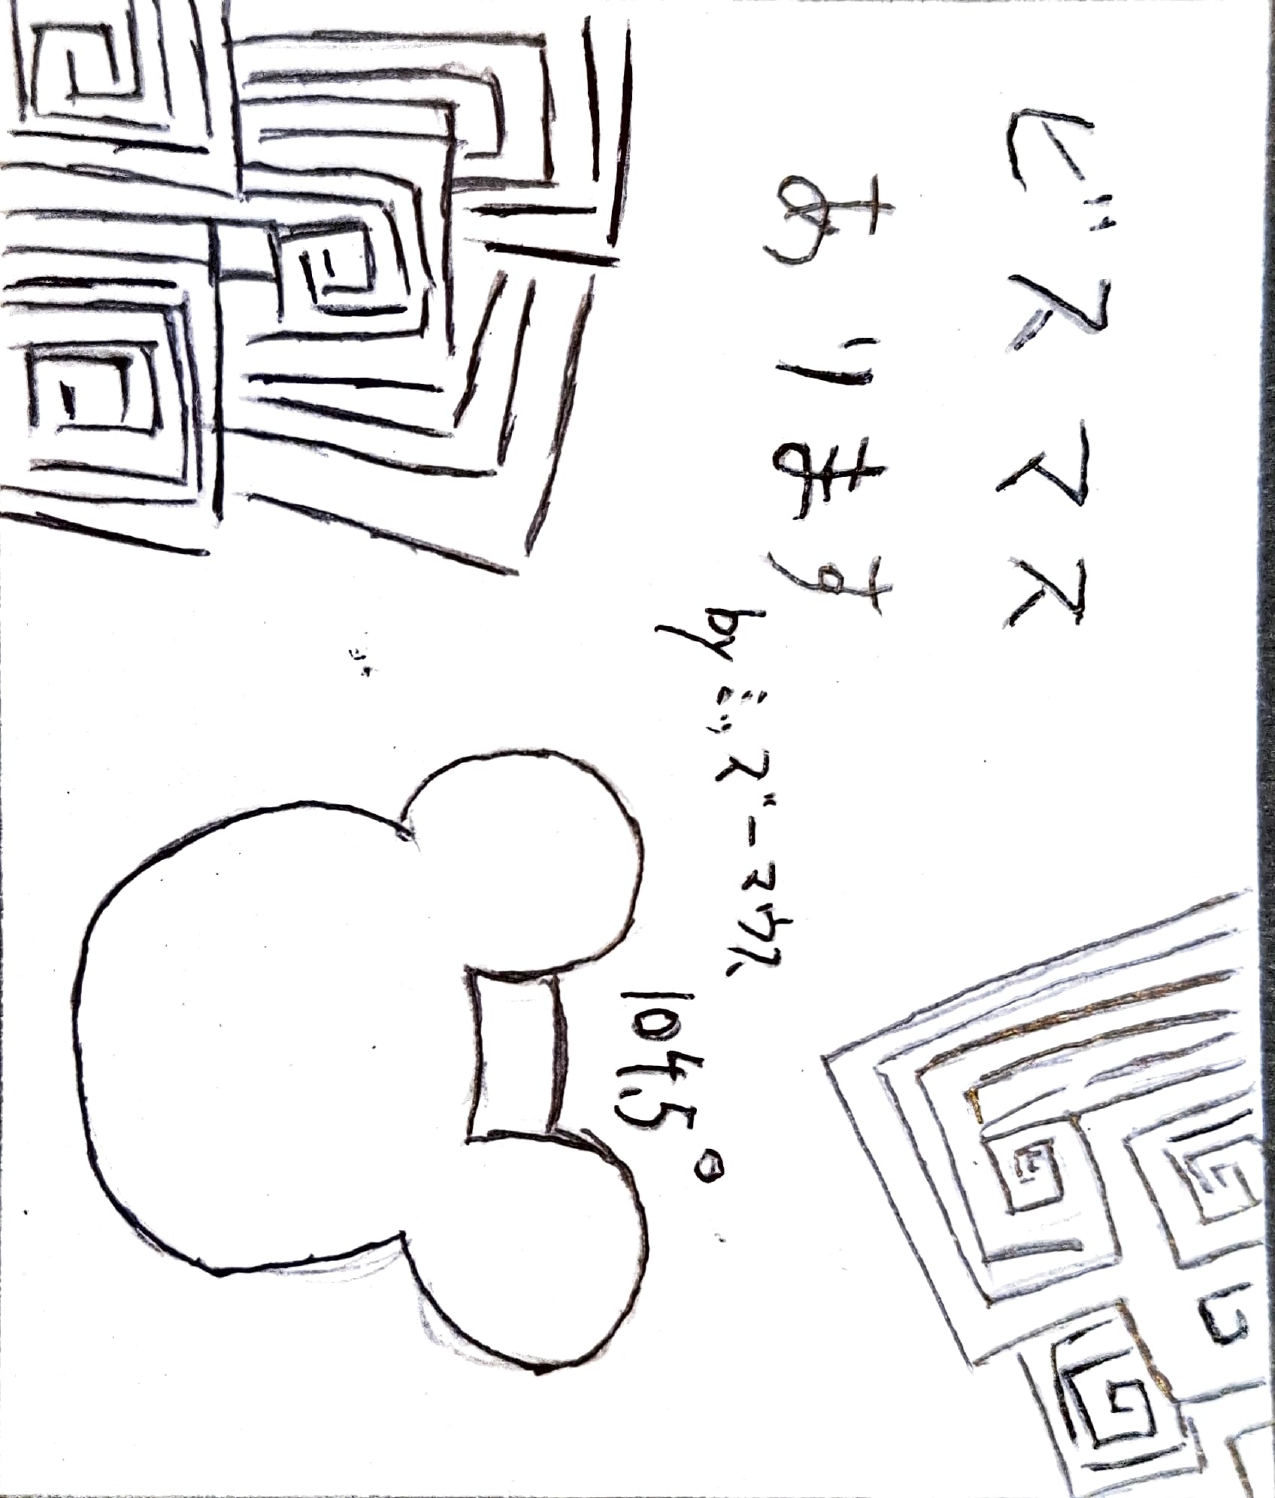 ビスマス
あります
by ミッズーマウス
104.5°